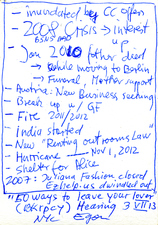 - inundated by CC offers
- 2008 CRISIS → Interest up
Jan 2010 father died
→ while moving to Berlin
→ Funeral, Mother support
- Austria: New Business, seeking
- Break up w/ GF
- Fire 2011/2012
- India started
- New "Renting out rooms Law"
- Hurricane — Nov 1, 2012
- Shelter for Alice
2007: Juliana Fashion closed
EzHelp.us dwindled out
"50 ways to leave your lover
Hearing 3 VII 13
NYC Egon